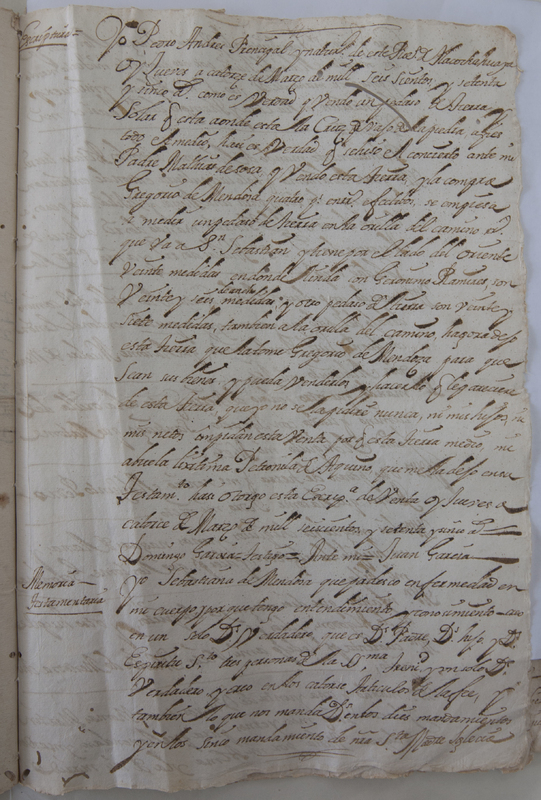 Escriptura =
Yo Pedro Andres Prencipal y natural de este Rl de Tlacochahuaya
oy Jueves a catorze de Março de mill seis sientos, y setenta
y unio as. como es Verdad q Vendo un pedaso de tierra
Solar q esta aonde esta la Cruz
todo el mato, haci es Verdad q se hiso el concierto ante mi
Padre Mathias de y Vendo esta tierra, y la compra
Gregorio de Mendoza quatro ps. en rs. efectibos, se empiesa
a medir un pedaso de tierra en la orilla del camino rl.
que va a Sn. Sebastian y tiene por el lado del Oriente
Veinte medidas en donde linda con Geronimo Ramires, son
Veinte y seis medidas, y otro pedaso de tierra son Veinte y
siete medidas, tambien a la orilla del camino, hagora dejo
esta tierra que la tome Gregorio de Mendoza para que
sean sus bienes, y pueda Venderlos, y hacer lo q le pareciere
de esta tierra, que yo no se la quitare nunca, ni mis hijos, ni
mis nietos impidan esta Venta por q esta tierra me dio, mi
abuela lexitima Petronila de Aquino, que me la dejo en su
Testamto. hasi otorgo esta Escripa. de Venta oy Jueves a
catorce de Março de mill seicientos, y setenta y unio as.
Domingo Garcia = testigo = Ante mi = Juan Garcia
Memoria
Testamentaria
Yo Sebastiana de Mendoza que padesco enfermedad en
mi cuerpo, por que tengo entendimiento, y conocimiento creo
en un solo Ds. y Verdadero, que es Ds. Padre, Ds. hijo, y Ds.
Espiritu Sto. tres personas de la Sma. Trenid. y un solo Ds.
Verdadero, y creo en los catorce Articulos de la fee, y
tambien lo que nos manda Ds. en los dies mandamientos
y en los sinco mandamiento de nra Sta. Madre Iglecia